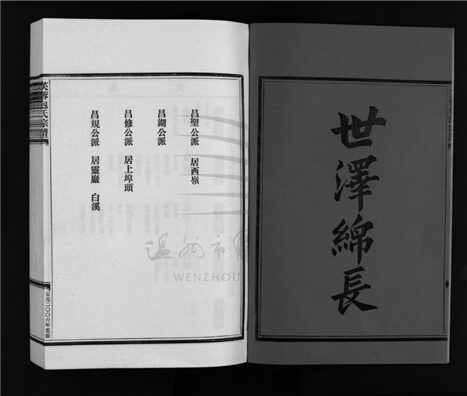 世澤綿長
昌聖公派 居西嶺
昌湖公派
昌修公派 居上埠頭
昌規公派 居靈巖 白溪
芙蓉包氏宗譜
公元二〇〇六年重修
溫州市
WENZHOU